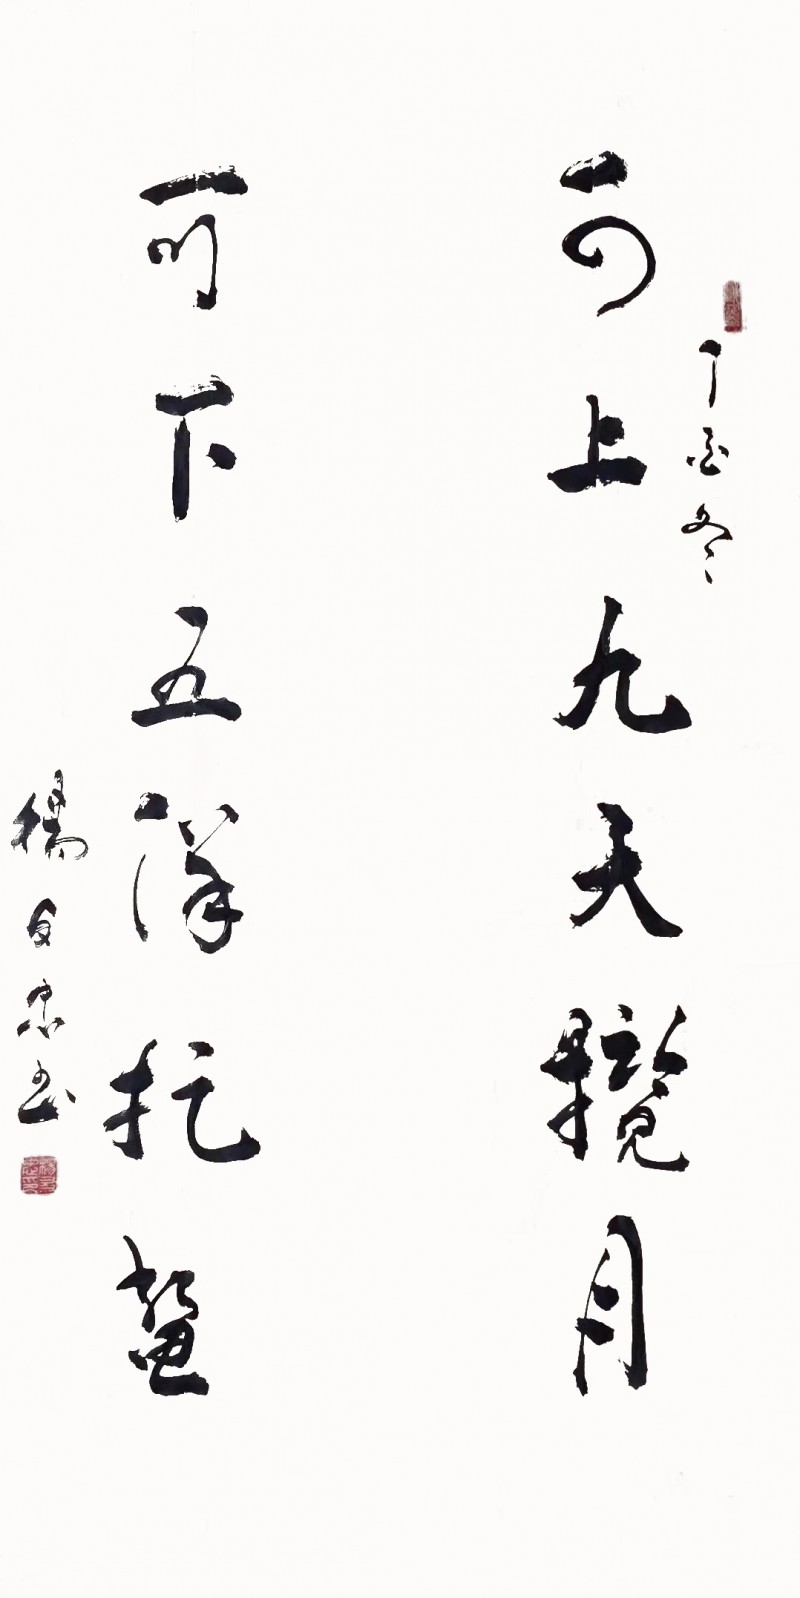 丁酉冬
可上九天攬月
可下五洋捉鳖
楊忠书